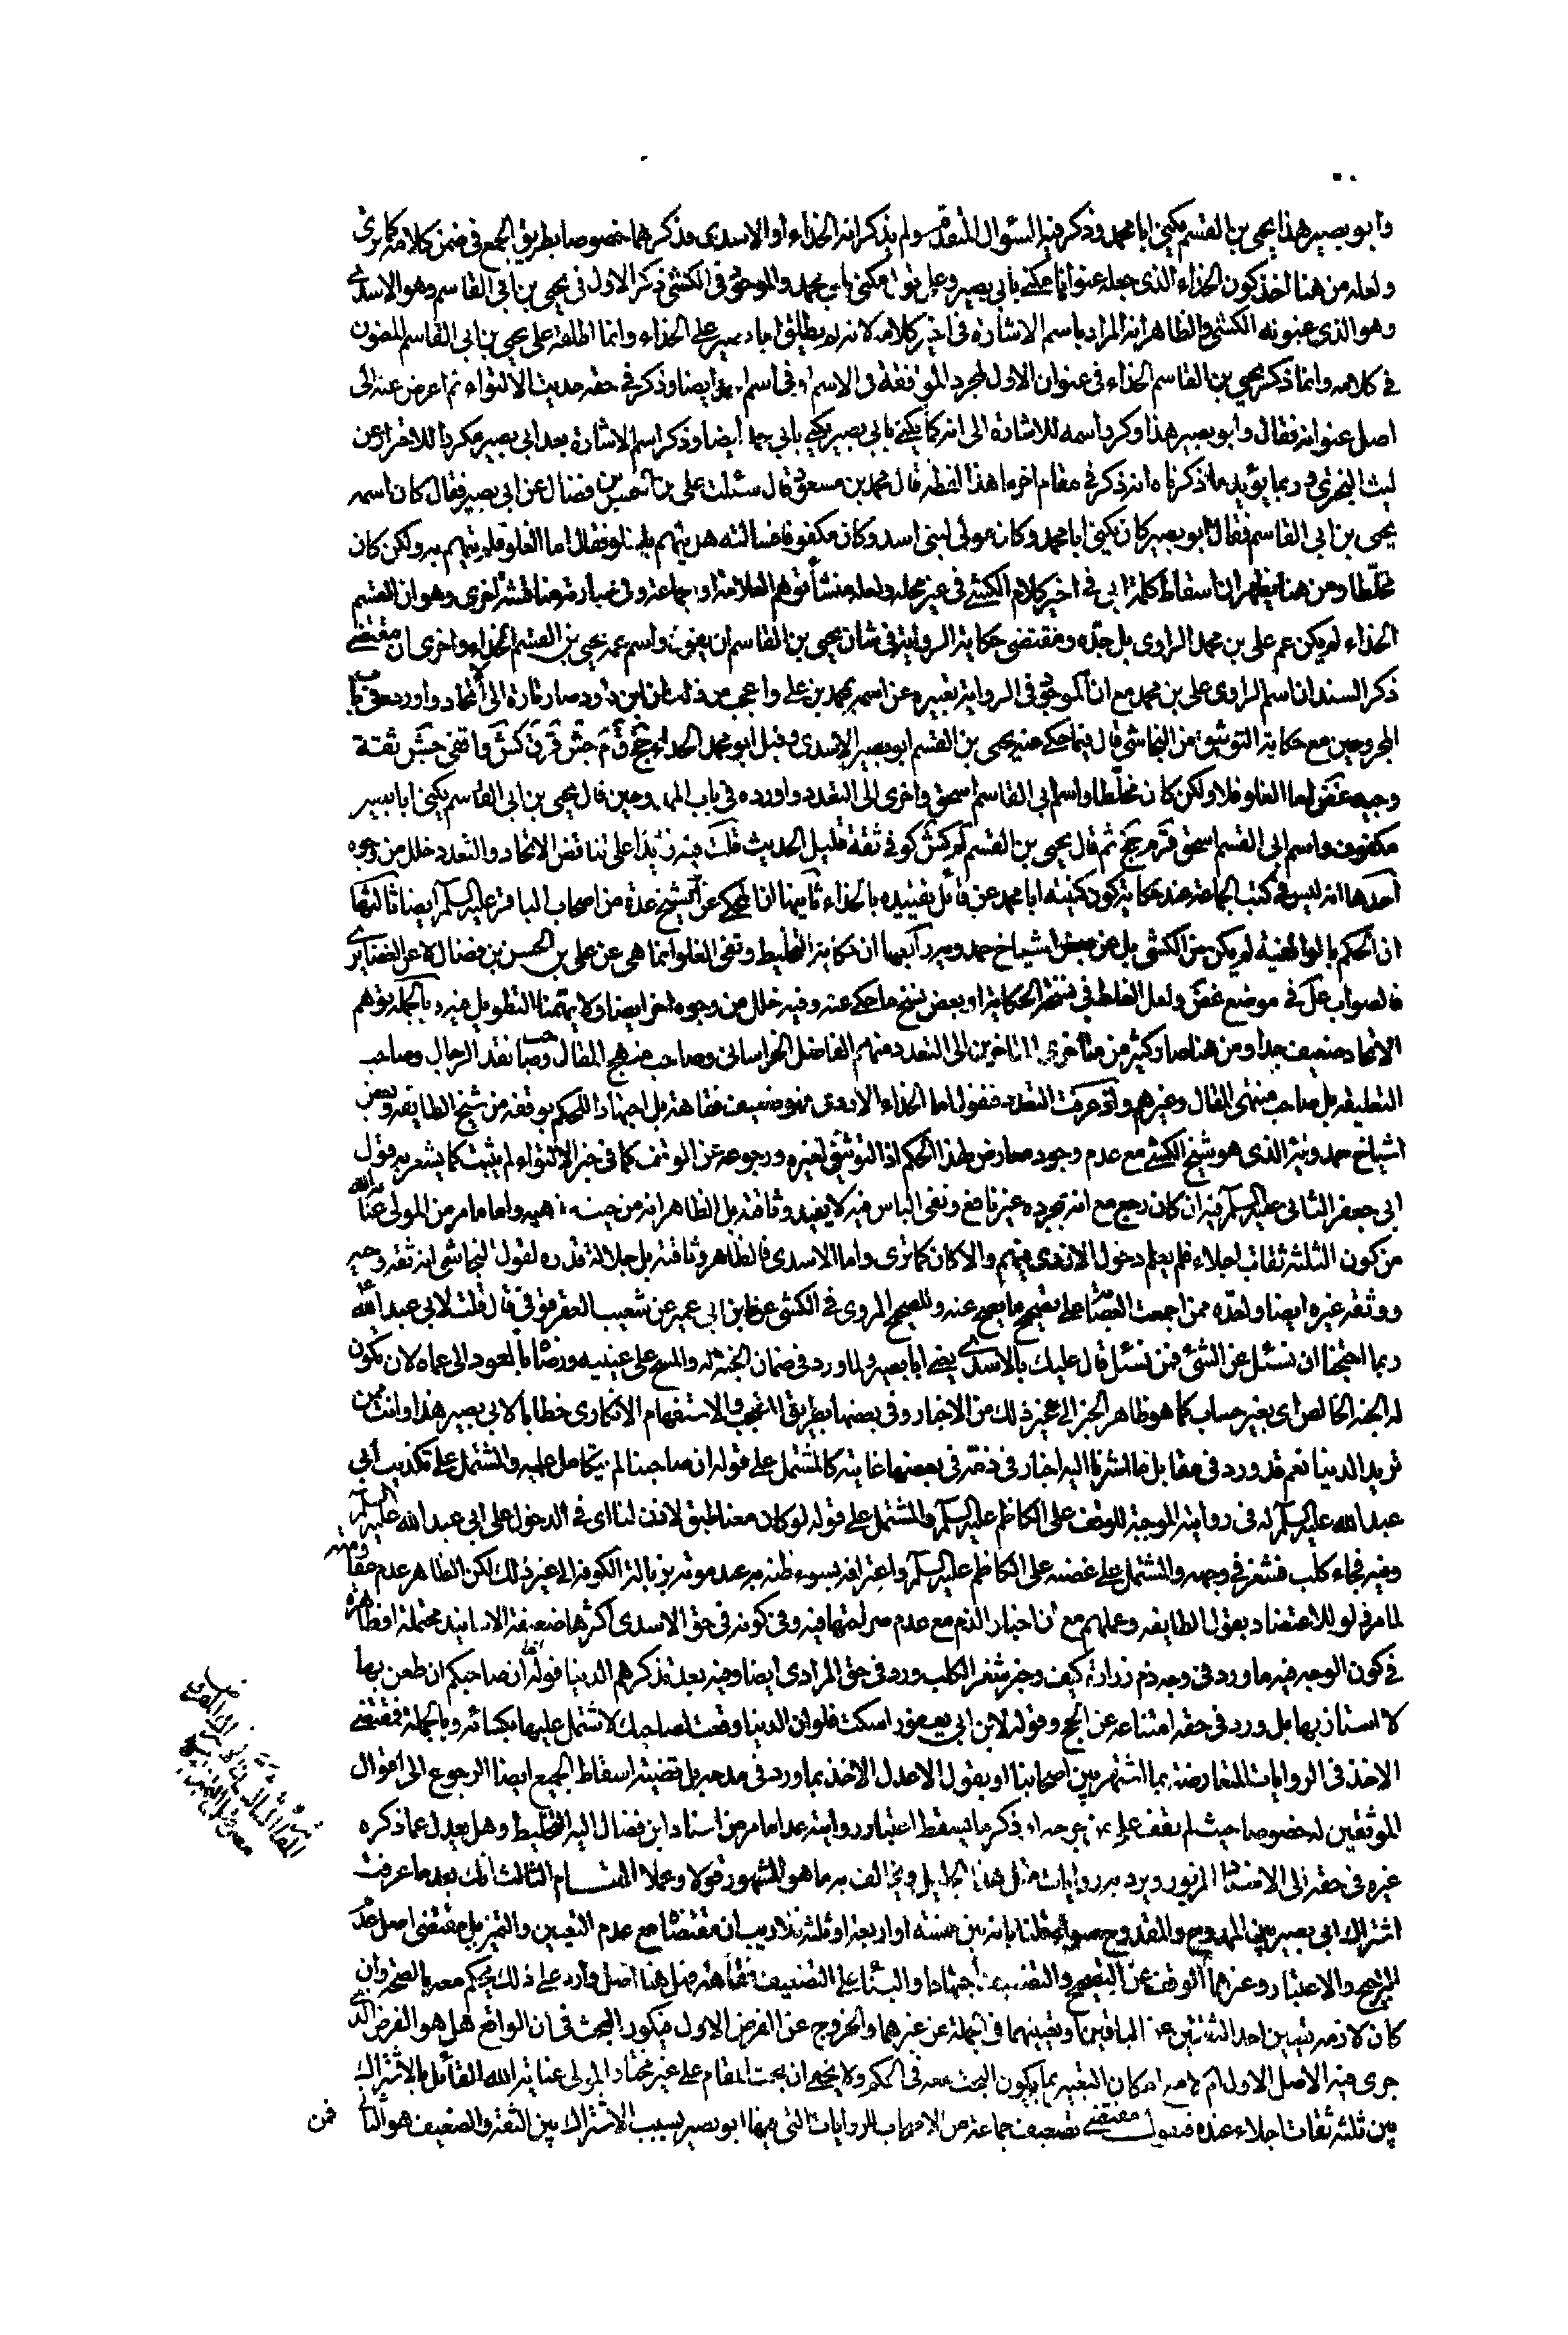 وابو بصير هذا يحيى بن القسم يكنى ابا محمد وذكر فيه السؤال المتقدم ولم يذكر انه الحذاء او الاسدى وذكرهما خصوصا بطريق الجمع فى ضمن كلامه كما ترى
ولعله من هنا اخذ كون الحذاء الذى جعله عنوانا مكنى بابى بصير وعلى تو مكنى بابى محمد والموجود فى الكشى ذكر الاول فى يحيى بن ابى القاسم وهو الاسدى
وهو الذى عنونه الكشى والظاهر انه المراد باسم الاشارة فى اخير كلامه لانه لم يطلق ابا بصير على الحذاء وانما اطلقه على يحيى بن ابى القاسم المعنون
فى كلامه وانما ذكر يحيى بن القاسم الحذاء فى عنوان الاول لمجرد الموافقة فى الاسم وفى اسم ايضا وذكر فى حقه حديث الالتواء ثم اعرض عنه الى
اصل عنوانه فقال وابو بصير هذا وكر باسمه للاشارة الى انه كما يكنى بابى بصير يكنى بابى محمد ايضا وذكر اسم الاشارة بعد ابى بصير مكررا للاحتراز عن
ليث البخترى وربما يؤيد ما ذكرناه انه ذكر فى مقام اخر ما هذا لفظه قال محمد بن مسعود قال سئلت على بن الحسن بن فضال عن ابى بصير فقال كان اسمه
يحيى بن ابى القاسم فقال ابو بصير كان يكنى ابا محمد وكان مولى لبنى اسد وكان مكفوفا فسالته هل يتهم بالغلو فقال اما الغلو فلم يتهم به ولكن كان
مخلطا ومن هنا يظهر ان اسقاط كلمة ابى فى اخير كلام الكشى فى غير محله ولعله منشأ توهم العلامة او جماعة وفى عبارته مناقشة اخرى وهو ان القسم
الحذاء لم يكن عم على بن محمد الراوى بل جده ومقتضى حكاية الرواية فى شان يحيى بن القاسم ان يقول واسم عمه يحيى بن القسم الحذاء واخرى ان مقتضى
ذكر السند ان اسم الراوى على بن محمد مع ان الموجود فى الرواية تعبيره عن اسمه بمحمد بن على واعجب من ذلك ان ابن داود صار تارة الى الاتحاد واورده فى باب
المجروحين مع حكاية التوثيق من النجاشى قال فيما حكى عنه يحيى بن القسم ابو بصير الاسدى وقيل ابو محمد الحذاء جخ ق م جش قر ق كش واقفى جش ثقة
وجيه غض اما الغلو فلا ولكن كان مخلطا واسم ابى القاسم اسحق واخرى الى التعدد واورده فى باب الممدوحين قال يحيى بن ابى القاسم يكنى ابا بصير
مكفوف واسم ابى القسم اسحق قر م جخ ثم قال يحيى بن القسم لم كش كوفى ثقة قليل الحديث قلت فيه زيادا على تناقض الاتحاد والتعدد خلل من وجوه
احدها انه ليس فى كتب الجماعة عند حكاية كون كنيته ابا محمد عن قائل تقييده بالحذاء ثانيها ان المحكى عن الشيخ عده من اصحاب الباقر عليه السلم ايضا ثالثها
ان الحكم بالواقفية لم يكن من الكشى بل عن بعض اشياخ حمدويه رابعها ان حكاية التخليط ونفى الغلو انما هى عن على بن الحسن بن فضال لا عن الغضايرى
فالصواب عل فى موضع غض ولعل الغلط فى نسخة الحكاية او بعض نسخ ما حكى عنه وفيه خلل من وجوه اخر ايضا ولا يهمنا التطويل فيه وبالجملة توهم
الاتحاد ضعيف جدا ومن هنا صار كثير من متاخرى المتاخرين الى التعدد منهم الفاضل الخراسانى وصاحب منهج المقال وصاحب نقد الرجال وصاحب
التعليقه بل صاحب منتهى المقال وغيرهم واذ عرفت التعدد فنقول اما الحذاء الازدى فهو ضعيف فقاهة بل اجتهادا للحكم بوقفه من شيخ الطايفه وبعض
اشياخ حمدويه الذى هو شيخ الكشى مع عدم وجود معارض لهذا الحكم اذ التوثيق لغيره ورجوعه عن الوقف كما فى خبر الالتواء لم يثبت كما يشعر به قول
ابى جعفر الثانى عليه السلم فيه ان كان رجع مع انه بمجرده غير نافع ونفى الباس فيه لا يفيد وثاقته بل الظاهر انه من حيث واما ما مر من المولى عناية الله
من كون الثلثة ثقات اجلاء فلم يعلم دخول الازدى منهم والا كان كما ترى واما الاسدى فالظاهر وثاقته بل جلالة قدره لقول النجاشى انه ثقة وجيه
ووثقه غيره ايضا ولعده ممن اجمعت العصابة على تصحيح ما يصح عنه وللصحيح المروى فى الكشى عن ابن ابى عمير عن شعيب العقرقوفى قال قلت لابى عبد الله ع
ربما احتجنا ان نسئل عن الشئ فمن نسئل قال عليك بالاسدى يعنى ابا بصير ولما ورد فى ضمان الجنة له والمسح على عينيه ورضائه بالعود الى عماه لان يكون
له الجنة الخالص اى بغير حساب كما هو ظاهر الخبر الى غير ذلك من الاخبار وفى بعضها بطريق التعجب والاستفهام الانكارى خطابا لابى بصير هذا وانت ممن
تريد الدنيا نعم قد ورد فى مقابل ما اشرنا اليه اخبار فى ذمه فى بعضها غايته كالمشتمل على قوله ان صاحبنا لم يتكامل علمه والمشتمل على تكذيب ابى
عبد الله عليه السلم له فى روايته الموجبة للوقف على الكاظم عليه السلم والمشتمل على قوله لو كان معنا طبق لاذن لنا اى فى الدخول على ابى عبد الله عليه السلم
وفيه فجاء كلب فشغر فى وجهه والمشتمل على غضبه على الكاظم عليه السلم واعترافه بسوء ظنه به عند موته بزبالة الكوفة الى غير ذلك لكن الظاهر عدم مقاومته
لما مر ولو للاعتضاد بقول الطايفه وعملهم مع ان اخبار الذم مع عدم صراحتها فيه وفى كونه فى حق الاسدى اكثرها ضعيفة الاسانيد محتملة او ظاهرة
فى كون الوجه فيه ما ورد فى وجه ذم زرارة كيف وخبر شغر الكلب ورد فى حق المرادى ايضا وفيه بعد تذكرهم الدنيا قوله ان صاحبكم ان ظفر بها
لاستاثر بها بل ورد فى حقه امتناعه عن الحج وقوله لابن ابى يعفور اسكت فلو ان الدنيا وقعت لصاحبك لاشتمل عليها بكسائه وبالجملة فمقتضى
الاخذ فى الروايات المتعارضة بما اشتهر بين اصحابنا او بقول الاعدل الاخذ بما ورد فى مدحه بل قضية اسقاط الجميع ايضا الرجوع الى اقوال
الموثقين له خصوصا حيث لم نقف على من جرحه او ذكر ما يسقط اعتبار روايته عدا ما مر من اسناد ابن فضال اليه التخليط وهل يعدل عما ذكره
غيره فى حقه الى الاسناد المزبور ويرد به روايات مثل هذا الجليل ويخالف به ما هو المشهور قولا وعملا المقام الثالث انك بعد ما عرفت
اشتراك ابى بصير بين الممدوح والمقدوح سواء قلنا بانه بين خمسة او اربعة او ثلثة فلا ريب ان مقتضاه مع عدم التعيين والتميز بل مقتضى اصل عدم
الترجيح والاعتبار وغيرهما الوقف عن التصحيح والتضعيف اجتهادا والبناء على التضعيف فقاهة فهل هنا اصل وارد على ذلك يحكم معه بالصحة وان
كان لازمه تعيين احد الثقتين عن الباقين او تعيينهما فى الجملة عن غيرهما والخروج عن الفرض الاول فيكون البحث فى ان الواقع هل هو الفرض الذى
جرى فيه الاصل الاول ام لا مع امكان التعبير بما يكون البحث معه فى الحكم ولا يخفى ان بحث المقام على غير مختار المولى عناية الله القائل بالاشتراك
بين ثلثة ثقات اجلاء عنده فنقول مقتضى تضعيف جماعة من الاصحاب الروايات التى فيها ابو بصير بسبب الاشتراك بين الثقة والضعيف هو الثانى
فمن